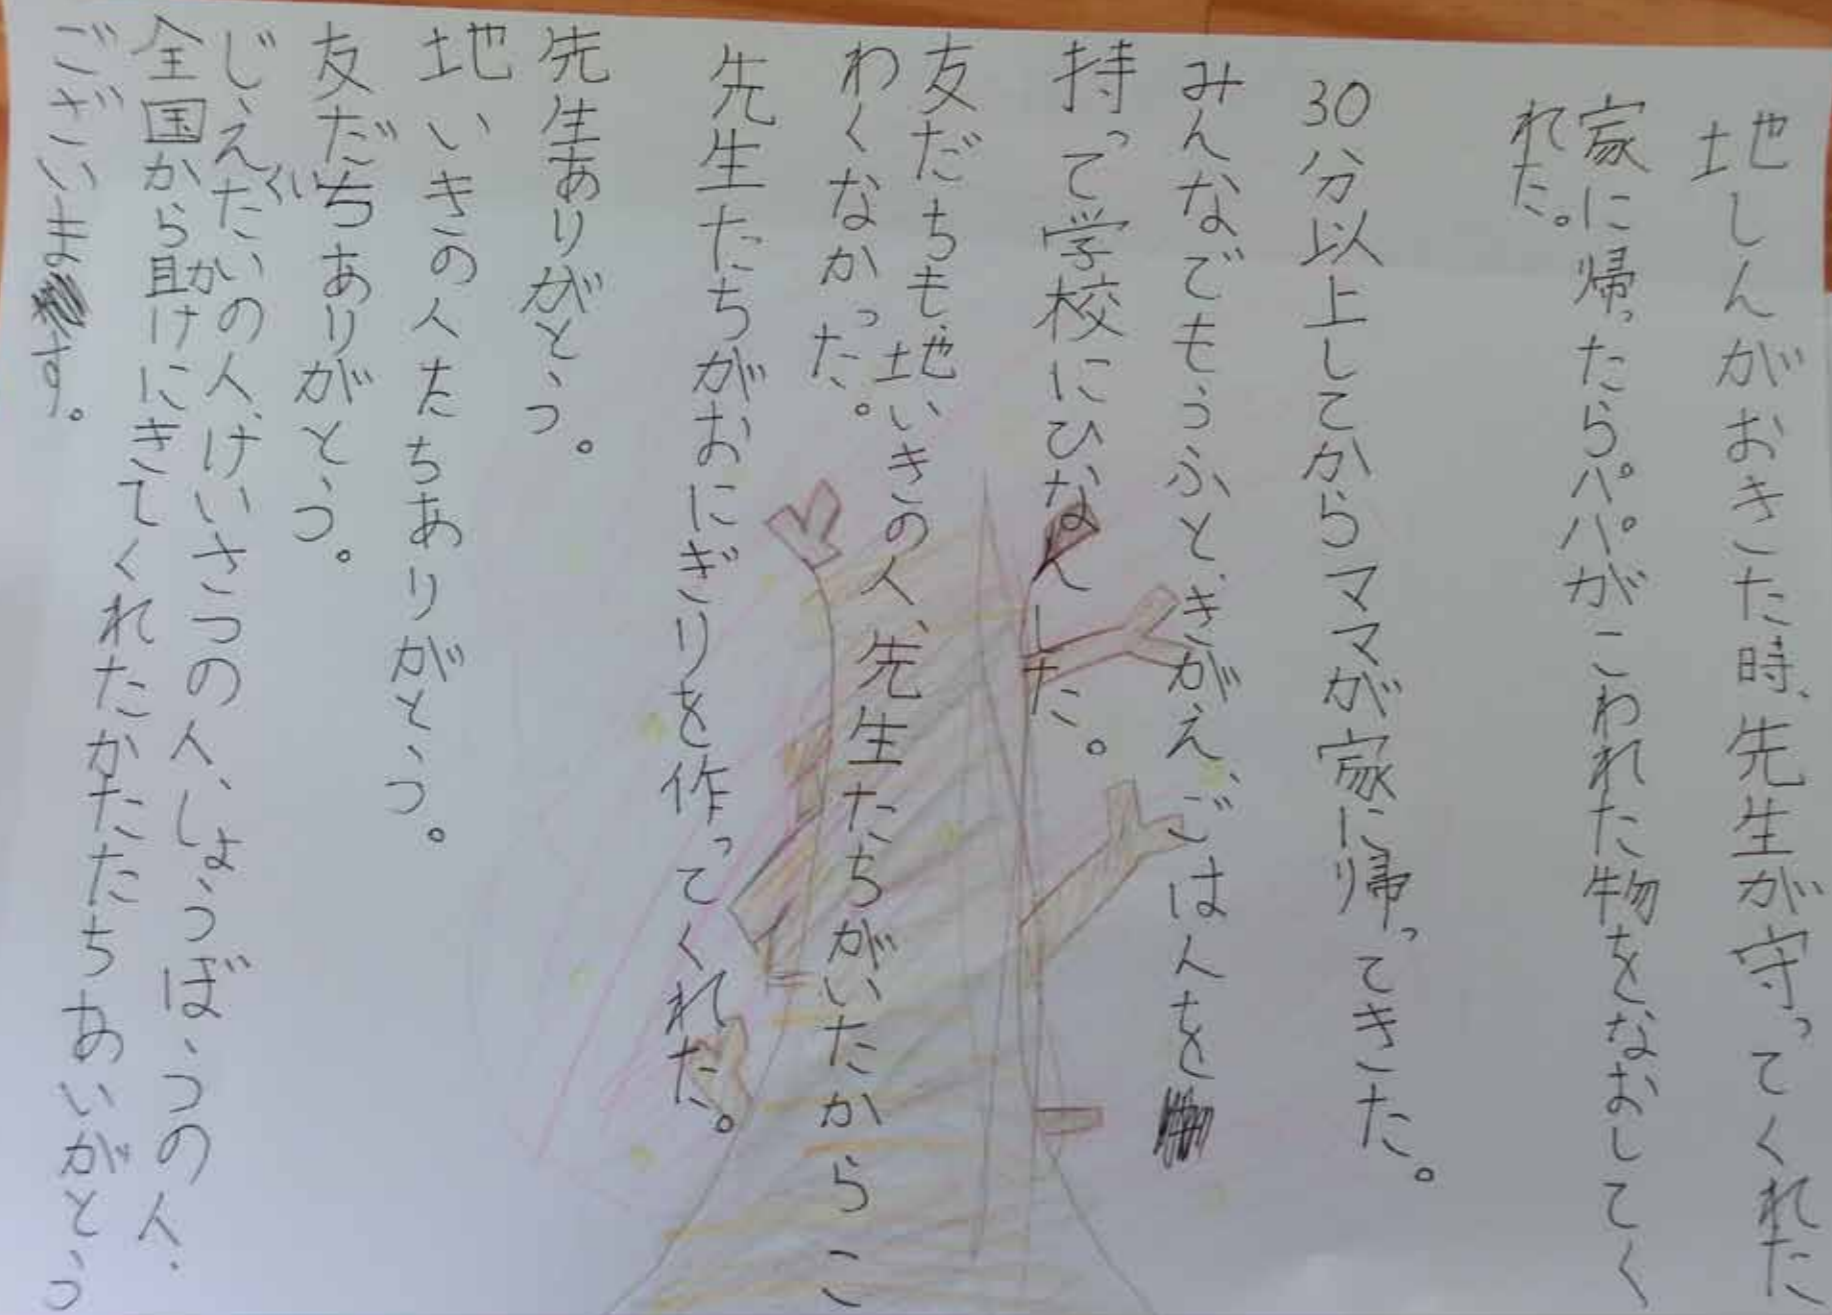 地しんがおきた時、先生が守ってくれた
家に帰ったらパパがこわれた物をなおしてく
れた。
30分以上してからママが家に帰ってきた。
みんなでもうふと、きがえ、ごはんを
持って学校にひなんした。
友だちも、地いきの人、先生たちがいたからこ
わくなかった。
先生たちがおにぎりを作ってくれた。
先生ありがとう。
地いきの人たちありがとう。
友だちありがとう。
じえたいの人、けいさつの人、しょうぼうの人、
全国から助けにきてくれたかたたちあいがとう
ございます。